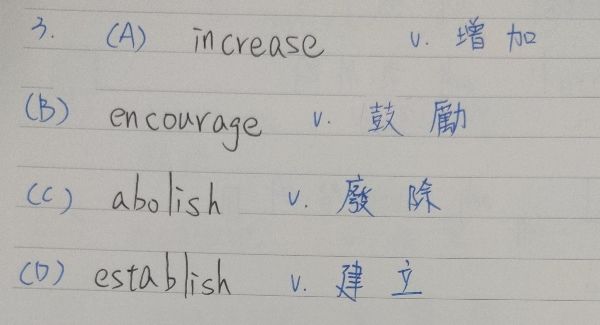 3. (A) increase v. 增加
(B) encourage v. 鼓勵
(C) abolish v. 廢除
(D) establish v. 建立